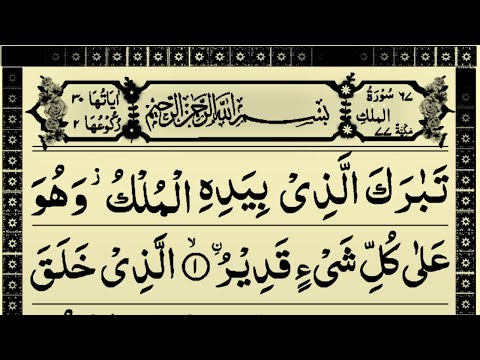 ٦٧ سُوْرَةُ الْمُلْكِ مَكِّيَّةٌ ٧٧
بِسْمِ اللهِ الرَّحْمٰنِ الرَّحِيْمِ
اٰيَاتُهَا ٣٠ رُكُوْعُهَا ٢
تَبٰرَكَ الَّذِىْ بِيَدِهِ الْمُلْكُ ز وَهُوَ
عَلٰى كُلِّ شَىْءٍ قَدِيْرُ ۨ ۙ ١ الَّذِىْ خَلَقَ